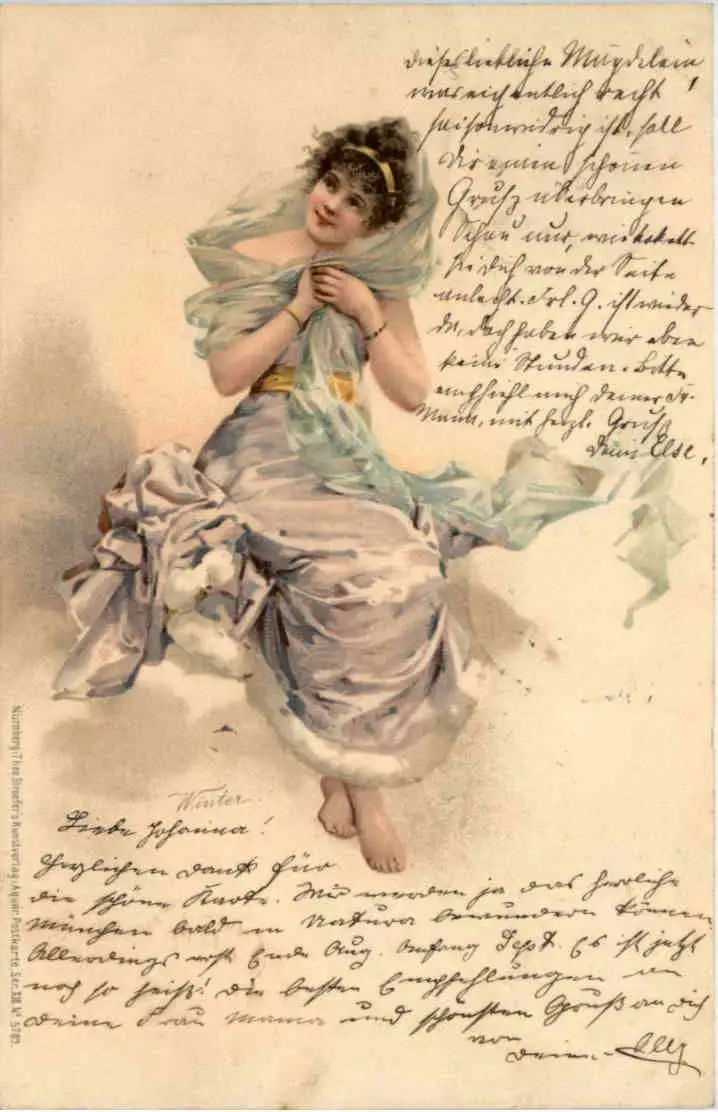 dieses liebliche Mägdelein,
was eigentlich recht
saisonwidrig ist, soll
Dir einen schönen
Gruß überbringen
Schau nur, wie kokett
sie Dich von der Seite
anlacht. Frl. G. ist wieder
da, doch haben wir aber
keine Stunden. Bitte
empfiehl mich Deiner Fr.
Mama, mit herzl. Gruß
Deine Else.
Winter.
Liebe Johanna!
Herzlichen Dank für
die schöne Karte. Wir werden ja das herrliche
München bald in Natura bewundern können.
Allerdings erst Ende Aug. Anfang Sept. Es ist jetzt
noch so heiß! Die besten Empfehlungen an
Deine Frau Mama und schönsten Gruß an Dich
von
Deiner Elly.
Nürnberg: Theo. Stroefer's Kunstverlag. Aquar. Postkarte Ser. XII № 5702.